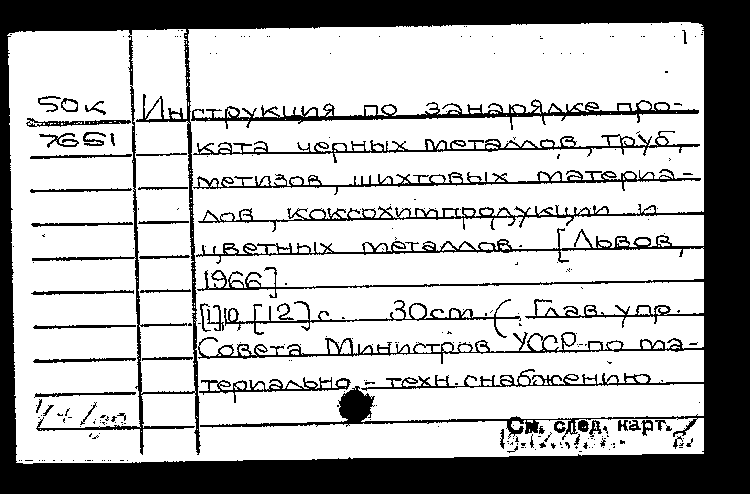 1
50к Инструкция по занарядке про-
7651 ката черных металлов, труб,
метизов, шихтовых материа-
лов, коксохимпродукции и
цветных металлов. [Львов,
1966].
[1], 10, [12] с. 30см. (Глав. упр.
Совета Министров УССР по ма-
териально-техн. снабжению.
См. след. карт.